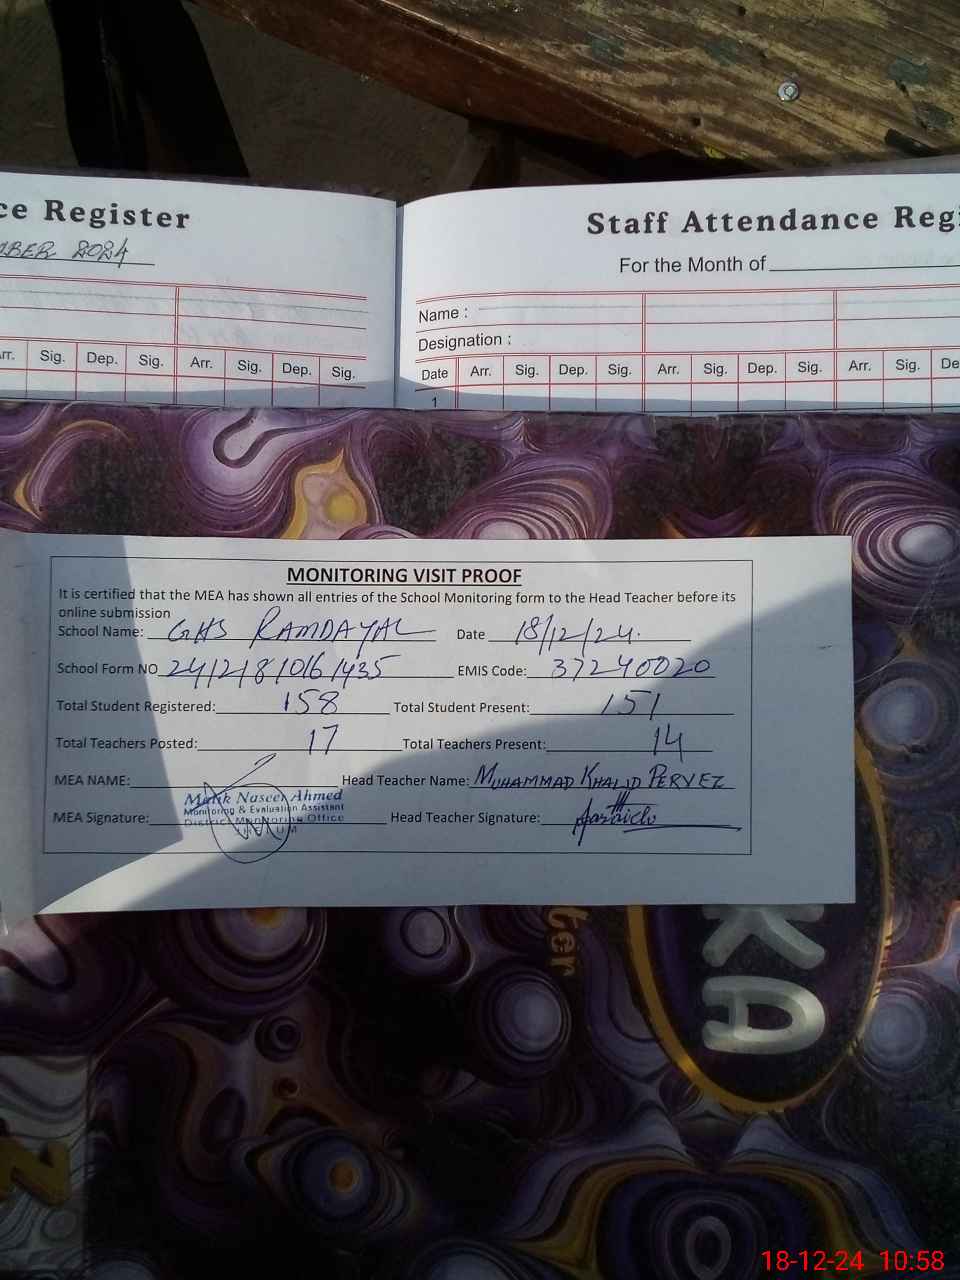 ce Register
MBER 2024
Arr. Sig. Dep. Sig. Arr. Sig. Dep. Sig.
Staff Attendance Regi
For the Month of
Name :
Designation :
Date Arr. Sig. Dep. Sig. Arr. Sig. Dep. Sig. Arr. Sig. De
1
MONITORING VISIT PROOF
It is certified that the MEA has shown all entries of the School Monitoring form to the Head Teacher before its
online submission
School Name: GHS RAMDAYAL Date 18/12/24.
School Form NO 2412181061435 EMIS Code: 37240020
Total Student Registered: 158 Total Student Present: 151
Total Teachers Posted: 17 Total Teachers Present: 14
MEA NAME: Head Teacher Name: MUHAMMAD KHALID PERVEZ
Malik Naseer Ahmed
Monitoring & Evaluation Assistant
District Monitoring Office
JHELUM
MEA Signature: Head Teacher Signature:
KA
ter
18-12-24 10:58